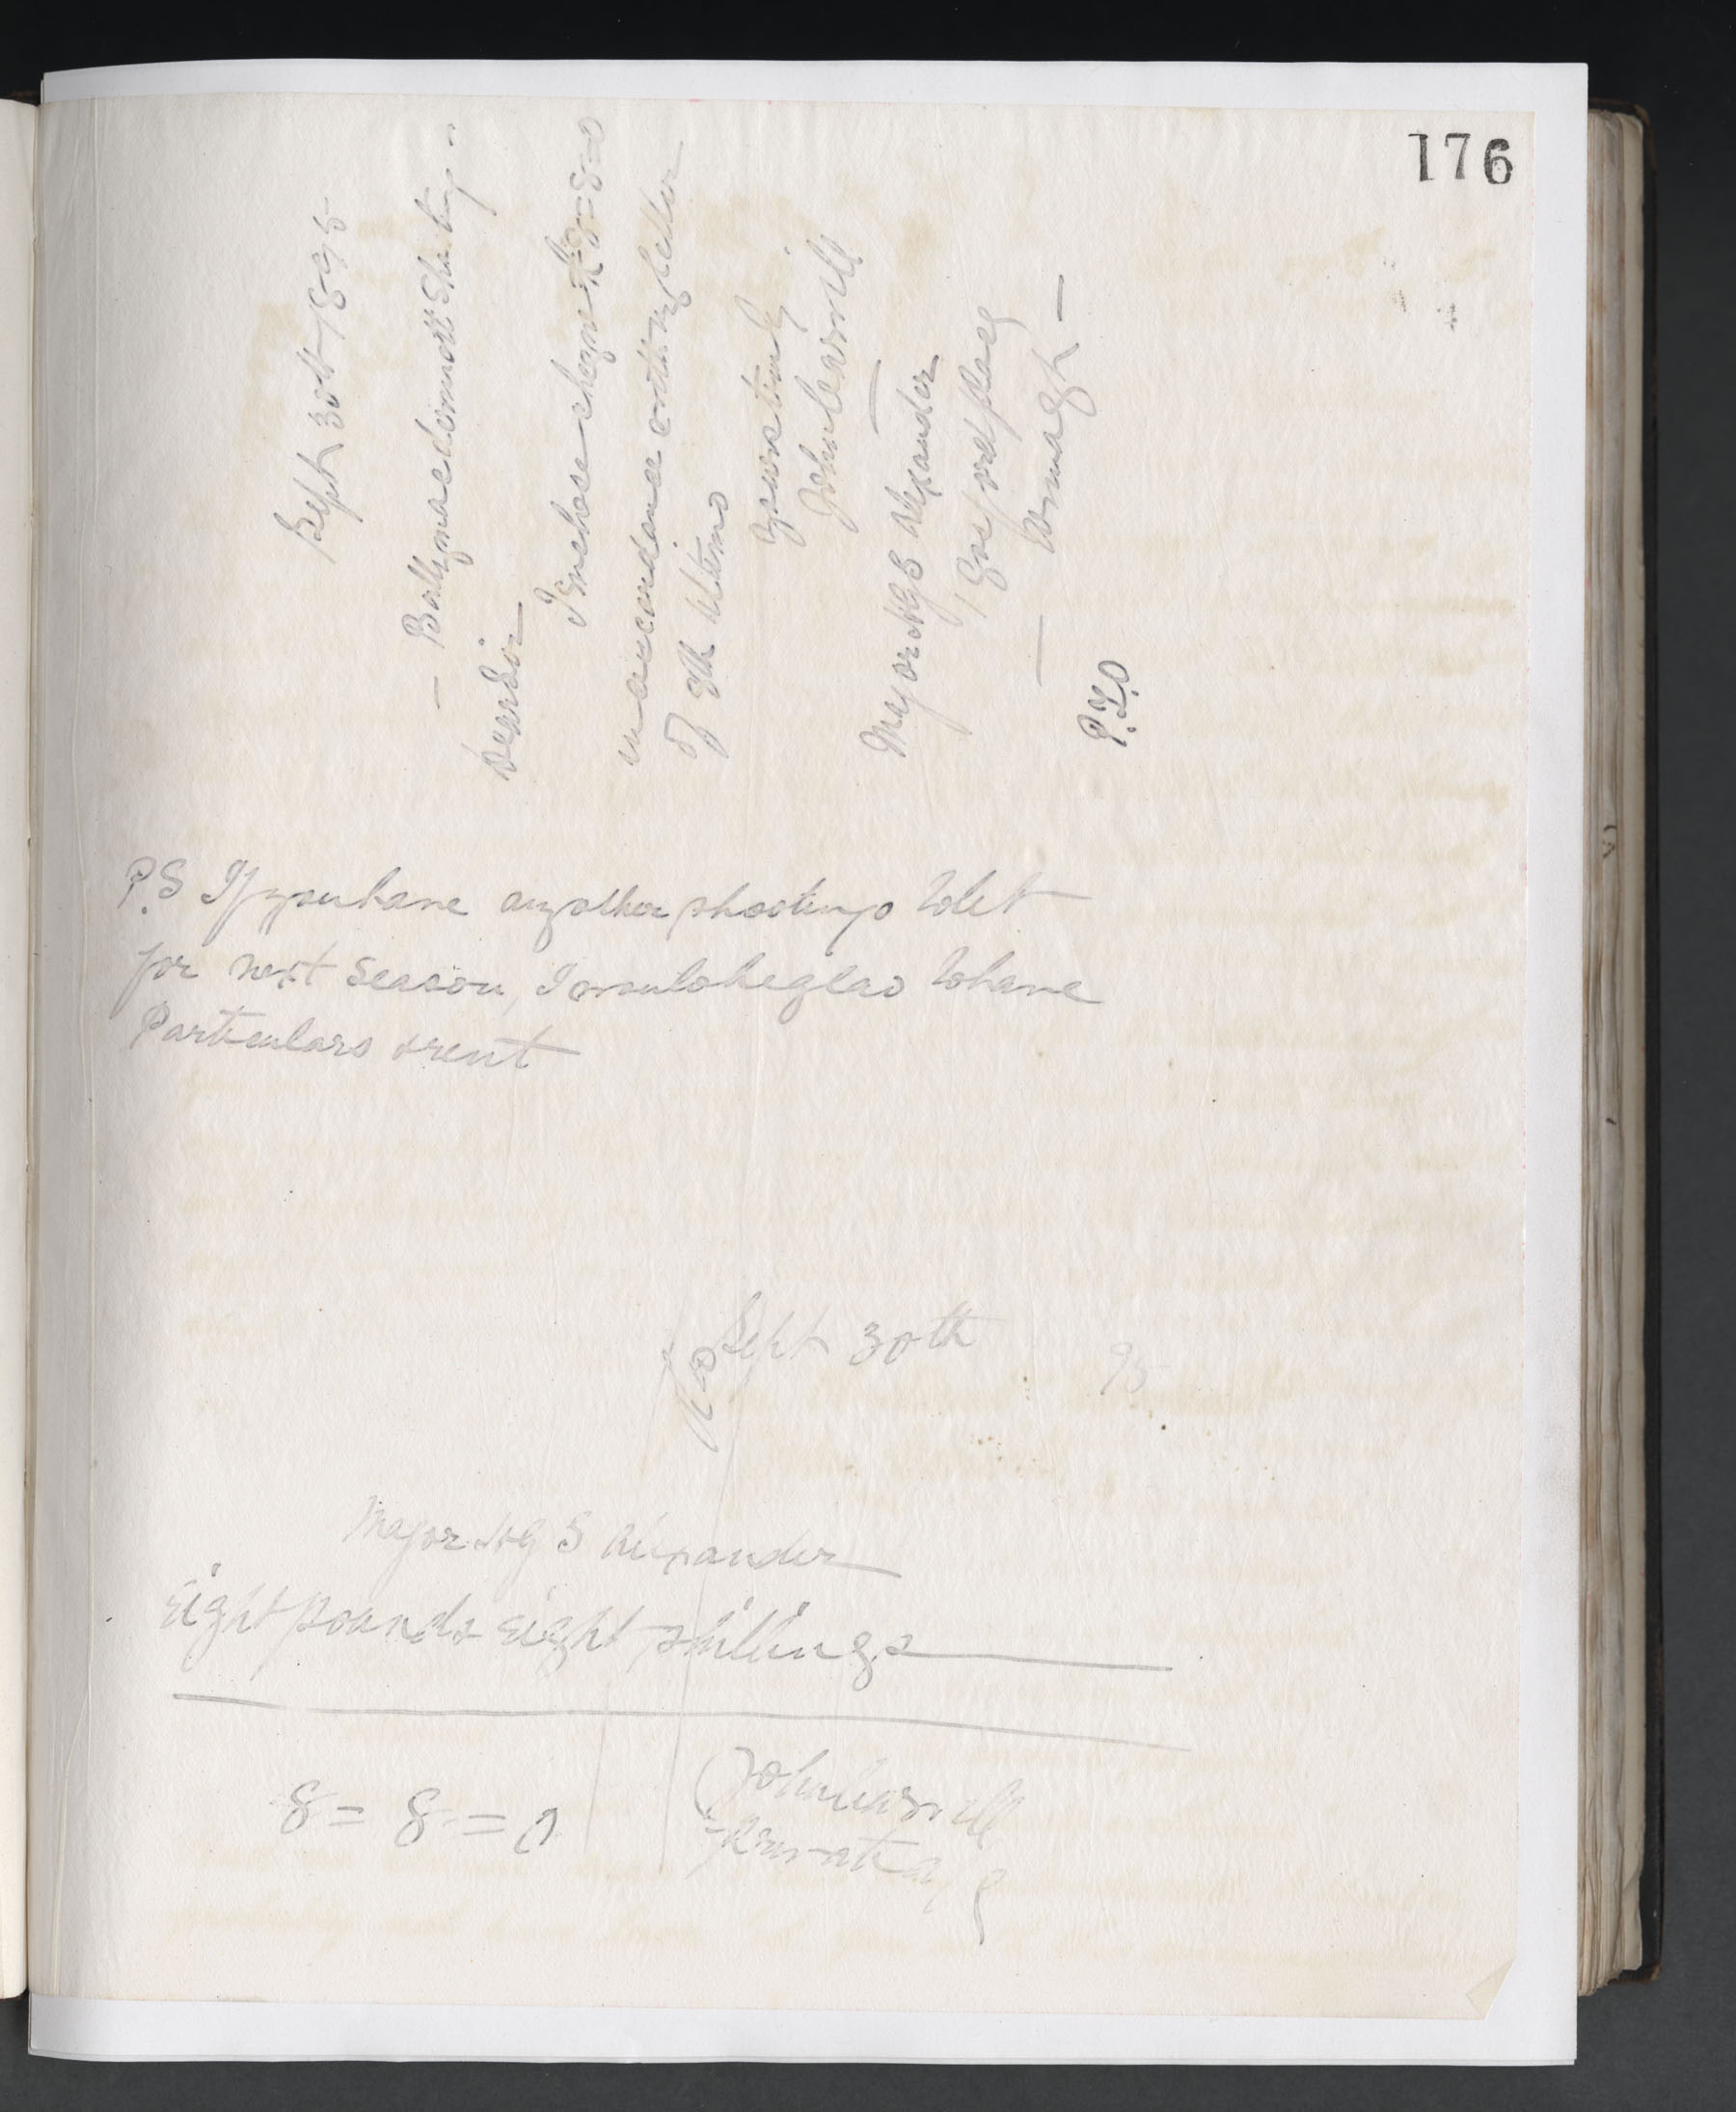 176
Sept 30th 1895
— Ballymacdermott Shooting —
Dear Sir
I enclose cheque £8=8=0
in accordance with my letter
of 9th Ultimo
Yours truly
John Carvill
Major H G S Alexander
1 Gosford Place
Armagh —
P.T.O
P.S If you have any other shootings to let
for next season, I would be glad to have
Particulars & rent
Sept 30th 95
Major H G S Alexander
Eight pounds Eight Shillings
8 = 8 = 0
John Carvill
Private a/c